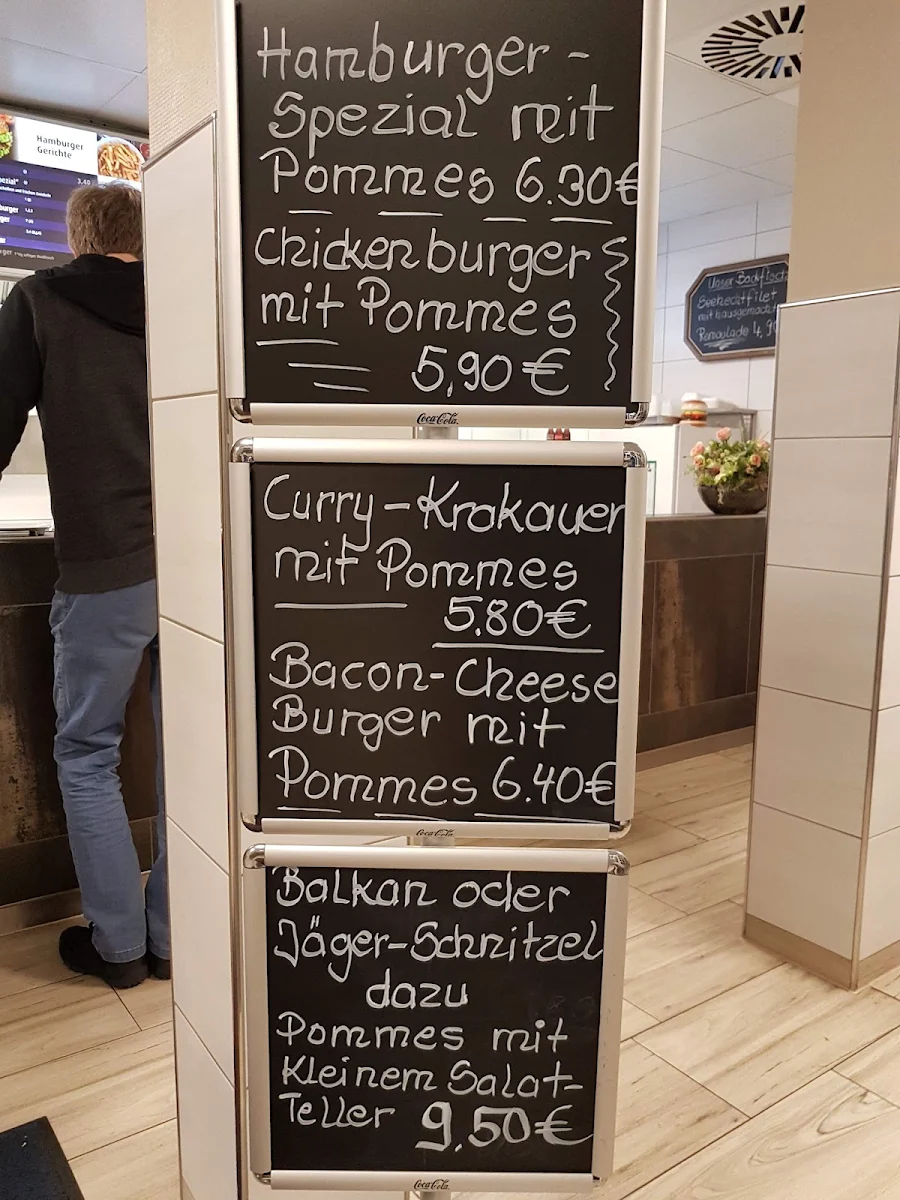 Hamburger -
Spezial mit
Pommes 6.30€
Chickenburger
mit Pommes
5,90 €
Coca-Cola
Curry-Krakauer
mit Pommes
5.80€
Bacon-Cheese
Burger mit
Pommes 6.40€
Coca-Cola
Balkan oder
Jäger-Schnitzel
dazu
Pommes mit
Kleinem Salat-
Teller 9,50€
Coca-Cola
Hamburger
Gerichte
3.40
Unser Backfisch
Seehechtfilet
mit hausgemacht
Remoulade 4,90